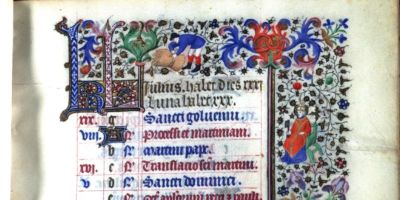 KL Julius habet dies xxxj
luna habet xxx.
xix g Sancti golueini
viij A Processi et martiniani.
b martini pape.
xvj c Translacio sci martini
v d Sancti dominici